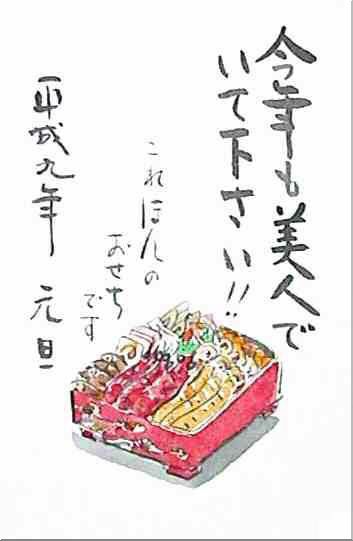 今年も美人で
いて下さい!!
これほんの
おせち
です
平成九年 元旦